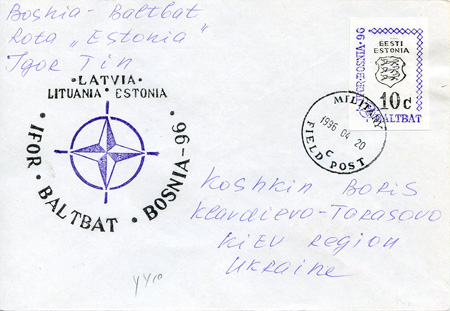 Bosnia - Baltbat
Rota „Estonia"
Igor Tin
• LATVIA •
LITUANIA • ESTONIA
• IFOR • BALTBAT • BOSNIA-96 •
IFOR-BOSNIA-96
EESTI
ESTONIA
10c
BALTBAT
MILITARY
1996 04 20
C
FIELD POST
Koshkin Boris
Klavdievo-Tarasovo
Kiev Region
Ukraine